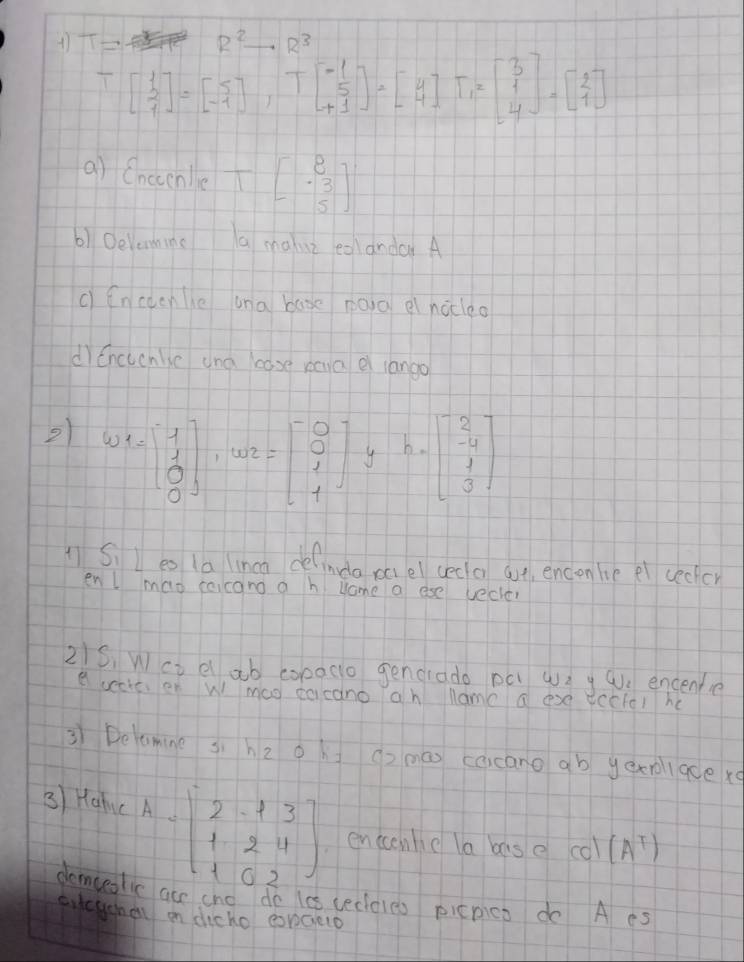 1) T = R² — R³
T [1 2 1] = [5 -1], T [-1 5 +1] = [4 4] T₁ = [3 1 4] = [2 1]
a) Encuentre T [8 -3 5]
b) Determine la matriz estandar A
c) Encuentre una base para el núcleo
d) Encuentre una base para el rango
2) w1 = [1 1 0 0], w2 = [0 0 1 1] y h = [2 -4 1 3]
1) Si L es la linea definida por el vector w1, encontre el vector
en L mas cercano a h llame a ese vector
2) Si W es el sub espacio generado por w2 y encentre
el vector en W mas cercano a h llame a ese vector
3) Determine si h2 o h1 es mas cercano a b y explique
3) Matriz A = [2 -1 3 1 2 4 1 0 2] encuentre la base col (Aᵀ)
demuestre que uno de los vectores propios de A es
en dicho espacio